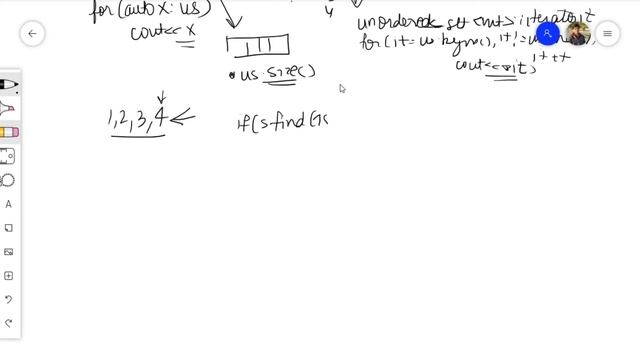 for(auto x: us)
cout<<x
us.size()
4
unordered set <int>:: iterator it
for(it=us.begin(), it!=
it++
cout<<*it;
1,2,3,4
if(s.find(
A